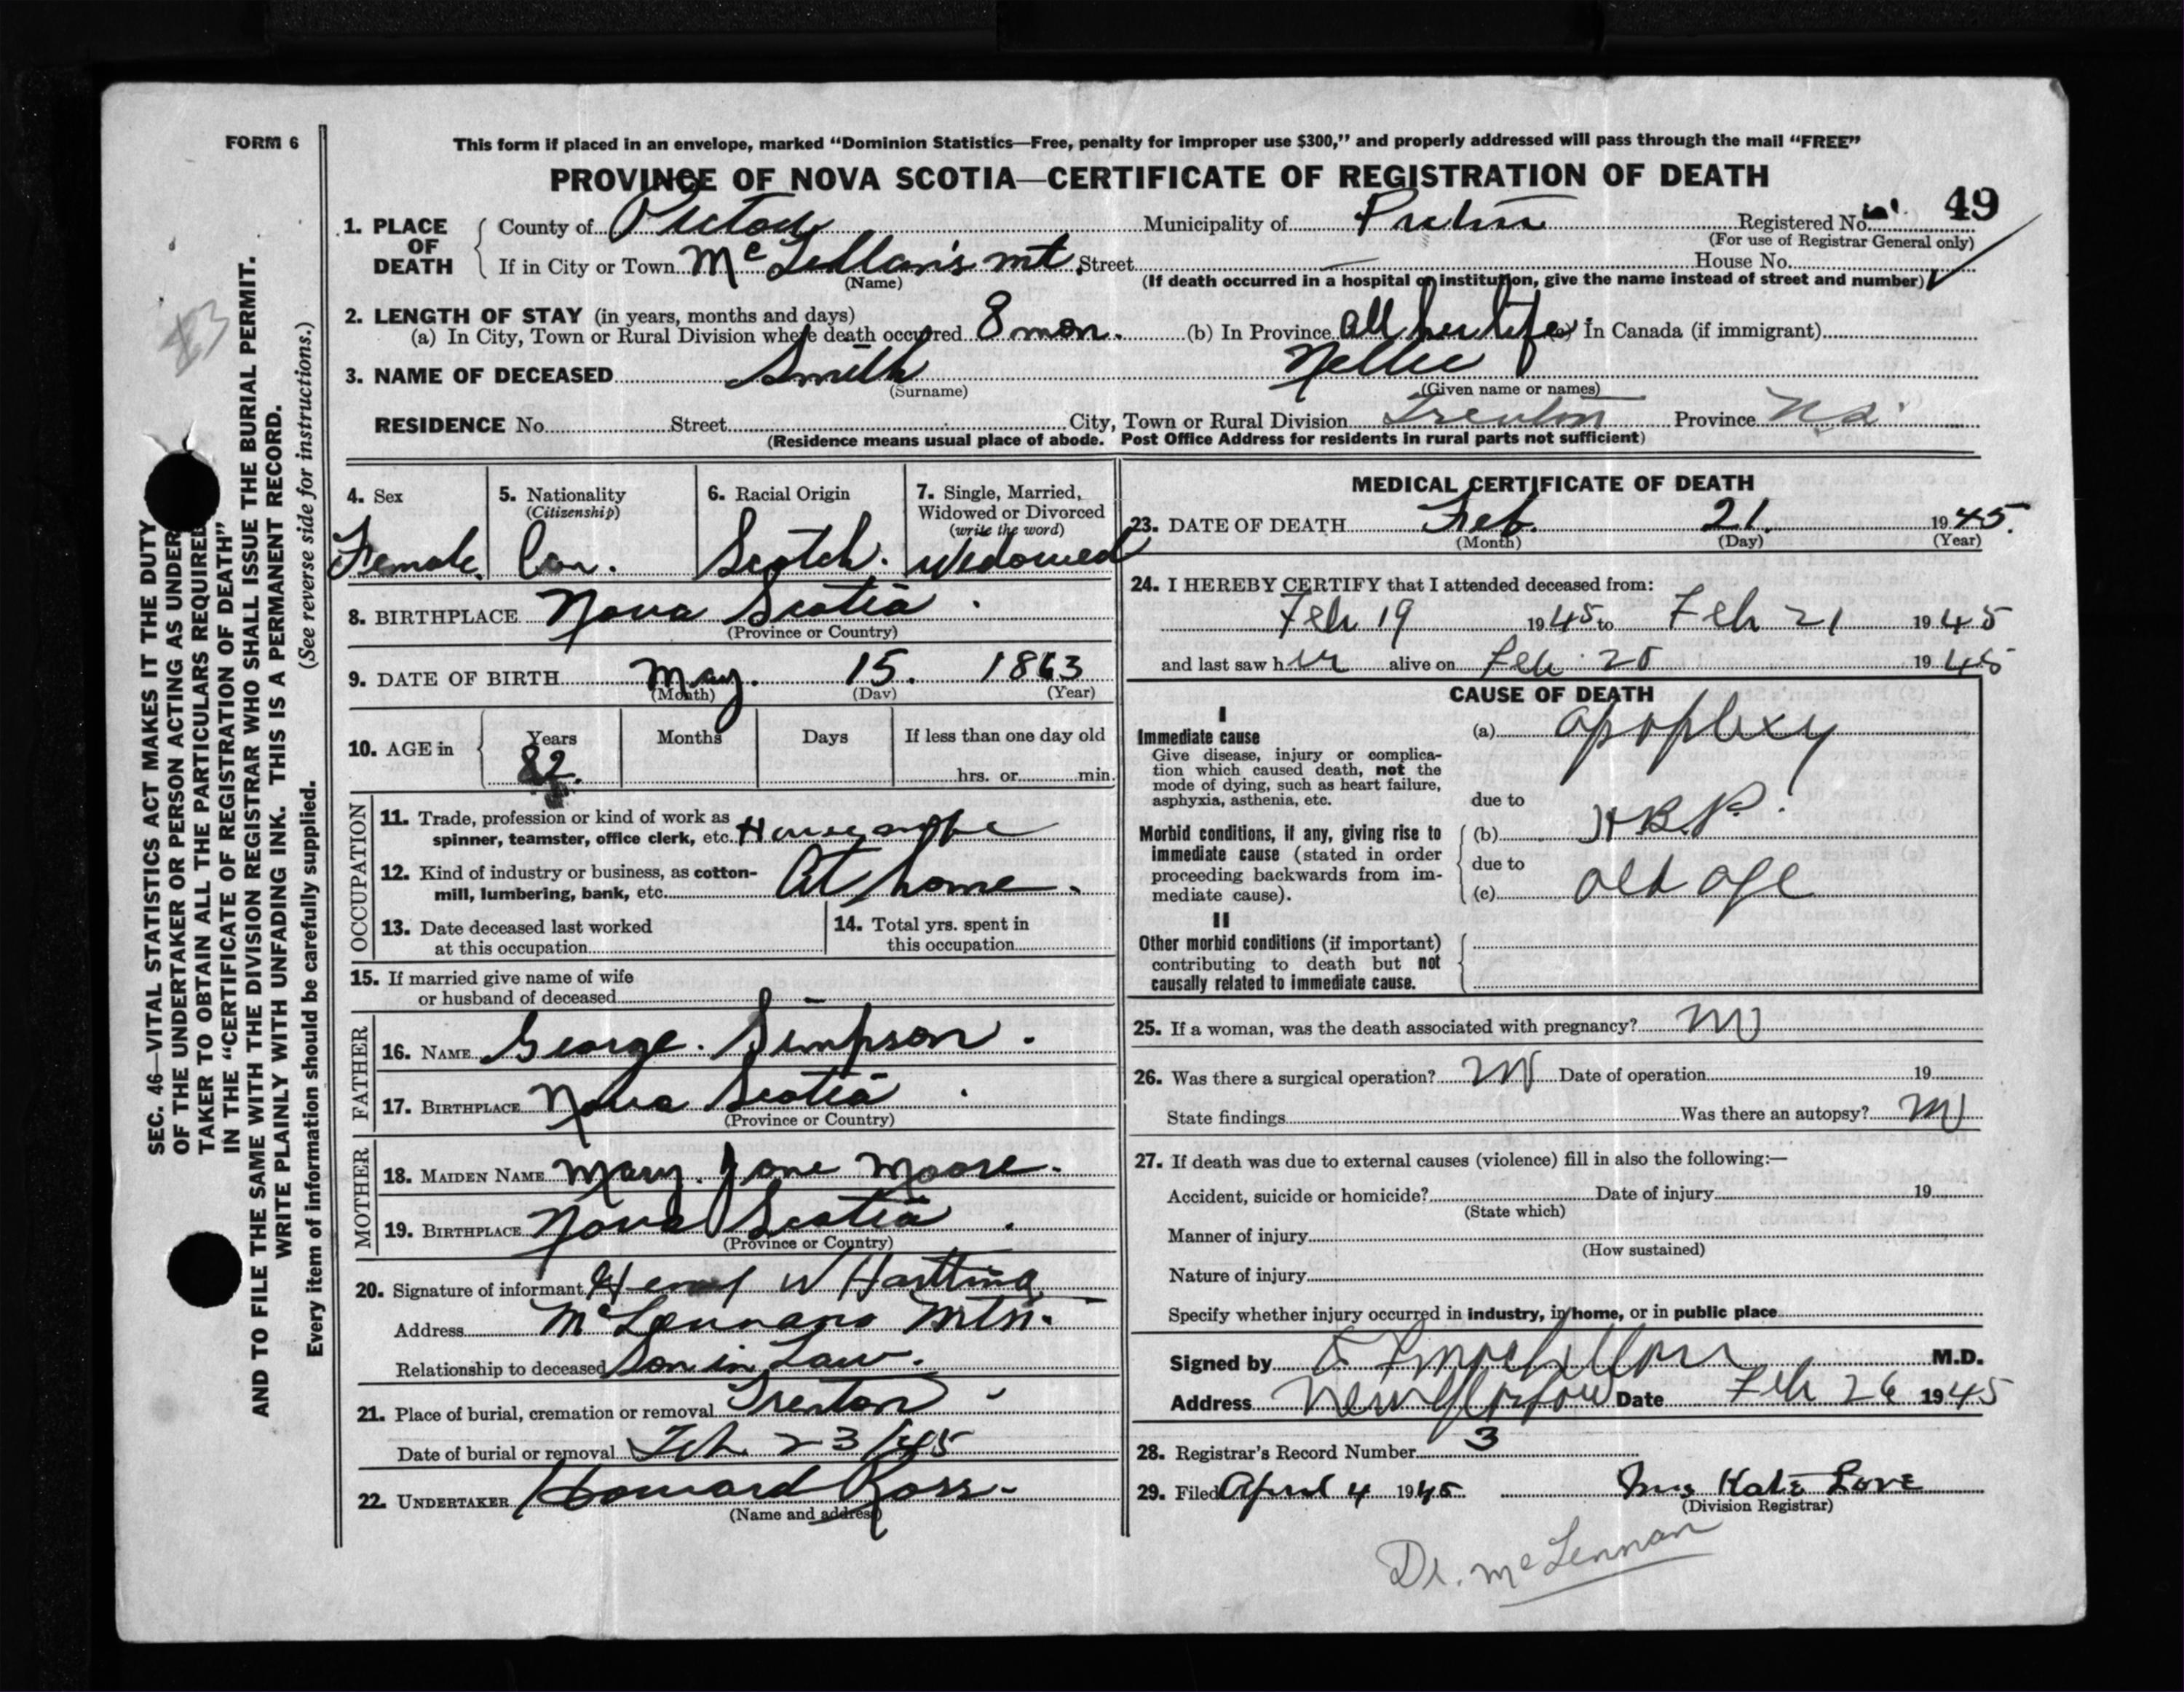 FORM 6
This form if placed in an envelope, marked “Dominion Statistics—Free, penalty for improper use $300,” and properly addressed will pass through the mail “FREE”
PROVINCE OF NOVA SCOTIA—CERTIFICATE OF REGISTRATION OF DEATH
49
1. PLACE OF DEATH
County of Pictou Municipality of Pictou Registered No.
(For use of Registrar General only)
If in City or Town McLellan's mt Street — House No.
(Name) (If death occurred in a hospital or institution, give the name instead of street and number)
2. LENGTH OF STAY (in years, months and days)
(a) In City, Town or Rural Division where death occurred 8 mon. (b) In Province all her life (c) In Canada (if immigrant)
3. NAME OF DECEASED Smith Nellie
(Surname) (Given name or names)
RESIDENCE No. Street City, Town or Rural Division Trenton Province N.S.
(Residence means usual place of abode. Post Office Address for residents in rural parts not sufficient)
4. Sex
Female.
5. Nationality
(Citizenship)
Can.
6. Racial Origin
Scotch.
7. Single, Married,
Widowed or Divorced
(write the word)
Widowed
8. BIRTHPLACE Nova Scotia
(Province or Country)
9. DATE OF BIRTH May. 15. 1863
(Month) (Day) (Year)
10. AGE in
Years Months Days If less than one day old
82. hrs. or min.
OCCUPATION
11. Trade, profession or kind of work as
spinner, teamster, office clerk, etc. Housewife
12. Kind of industry or business, as cotton-
mill, lumbering, bank, etc. At home.
13. Date deceased last worked
at this occupation
14. Total yrs. spent in
this occupation
15. If married give name of wife
or husband of deceased
FATHER
16. NAME George. Simpson.
17. BIRTHPLACE Nova Scotia
(Province or Country)
MOTHER
18. MAIDEN NAME Mary. Jane Moore.
19. BIRTHPLACE Nova Scotia
(Province or Country)
20. Signature of informant W Hartting
Address McLennans Mtn.
Relationship to deceased Son in Law.
21. Place of burial, cremation or removal Trenton
Date of burial or removal Feb. 23/45
22. UNDERTAKER Howard Ross
(Name and address)
MEDICAL CERTIFICATE OF DEATH
23. DATE OF DEATH Feb. 21. 1945.
(Month) (Day) (Year)
24. I HEREBY CERTIFY that I attended deceased from:
Feb 19 1945 to Feb 21 1945
and last saw her alive on Feb 20 1945
CAUSE OF DEATH
I
Immediate cause
Give disease, injury or complica-
tion which caused death, not the
mode of dying, such as heart failure,
asphyxia, asthenia, etc.
(a) apoplexy
due to
Morbid conditions, if any, giving rise to
immediate cause (stated in order
proceeding backwards from im-
mediate cause).
(b) H.B.P.
due to
(c) old age
II
Other morbid conditions (if important)
contributing to death but not
causally related to immediate cause.
25. If a woman, was the death associated with pregnancy? no
26. Was there a surgical operation? no Date of operation 19
State findings Was there an autopsy? no
27. If death was due to external causes (violence) fill in also the following:—
Accident, suicide or homicide? Date of injury 19
(State which)
Manner of injury
(How sustained)
Nature of injury
Specify whether injury occurred in industry, in home, or in public place
Signed by M.D.
Address New Glasgow Date Feb 26 1945
28. Registrar's Record Number 3
29. Filed April 4 1945 Mrs Kate Love
(Division Registrar)
Dr. McLennan
83
SEC. 46—VITAL STATISTICS ACT MAKES IT THE DUTY
OF THE UNDERTAKER OR PERSON ACTING AS UNDER
TAKER TO OBTAIN ALL THE PARTICULARS REQUIRED
IN THE “CERTIFICATE OF REGISTRATION OF DEATH”
AND TO FILE THE SAME WITH THE DIVISION REGISTRAR WHO SHALL ISSUE THE BURIAL PERMIT.
WRITE PLAINLY WITH UNFADING INK. THIS IS A PERMANENT RECORD.
Every item of information should be carefully supplied. (See reverse side for instructions.)